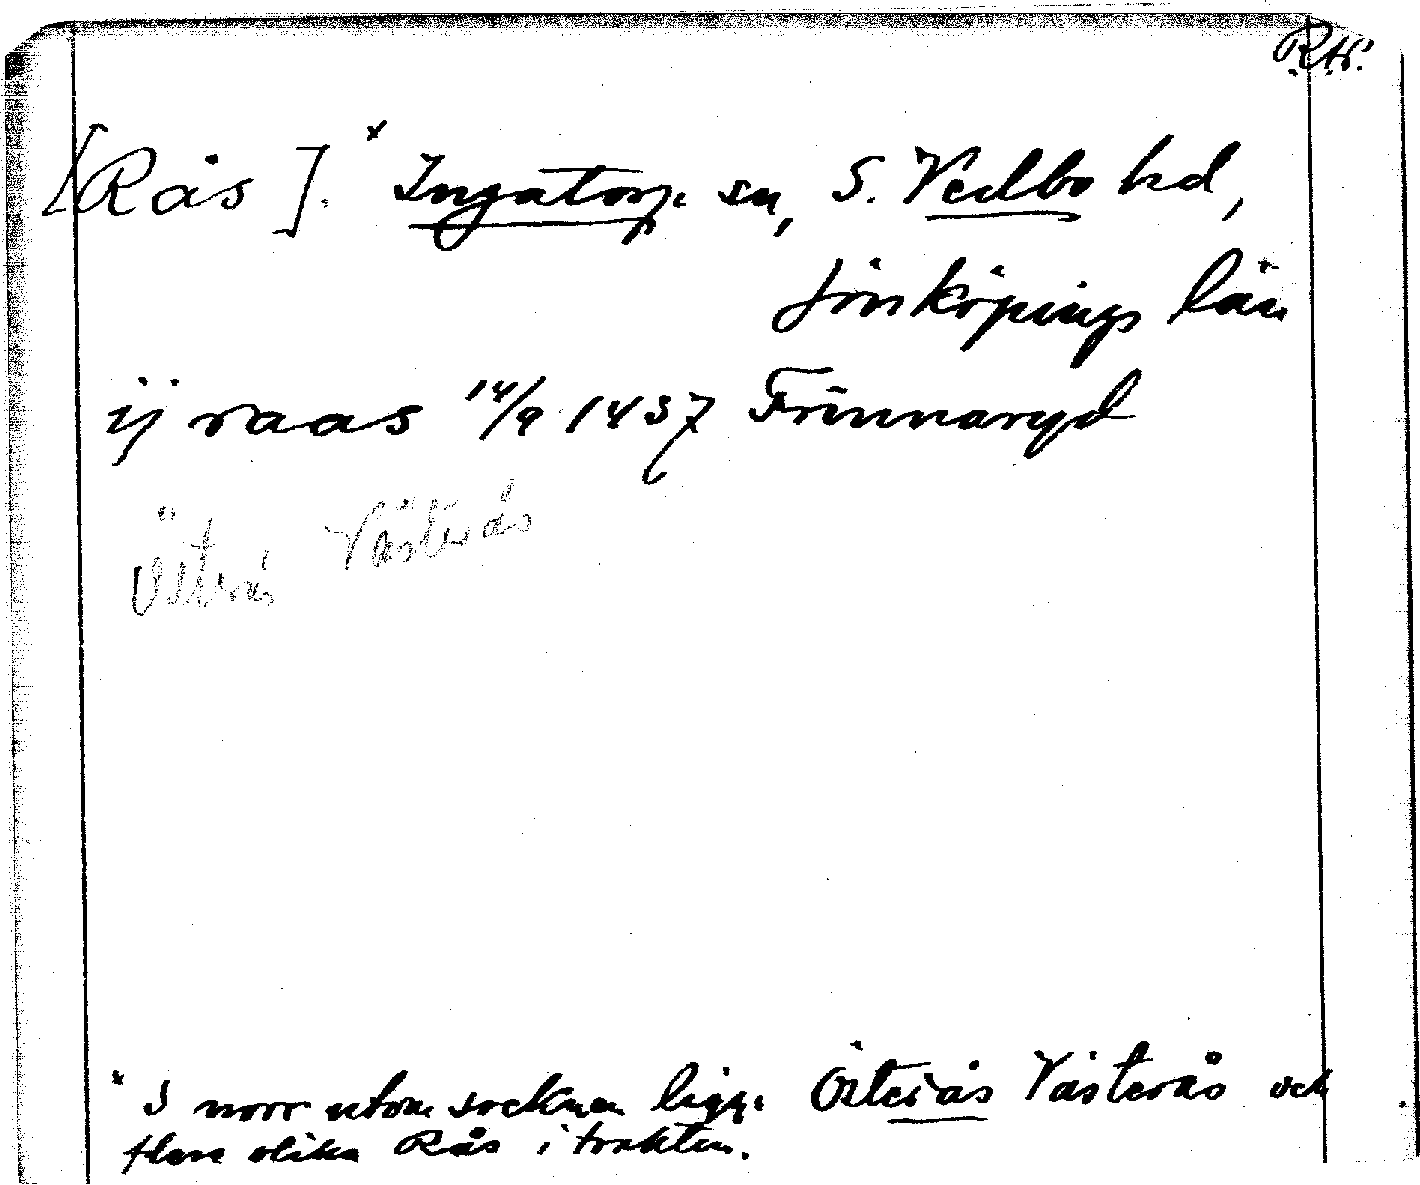 R.A.
[Rås].x Ingatorp sn, S. Vedbo hd,
Jönköpings län
ij raas 14/9 1437 Frinnaryd
Österås Västerås
x I norr utom socknen ligg. Österås Västerås och
flera olika Rås i trakten.